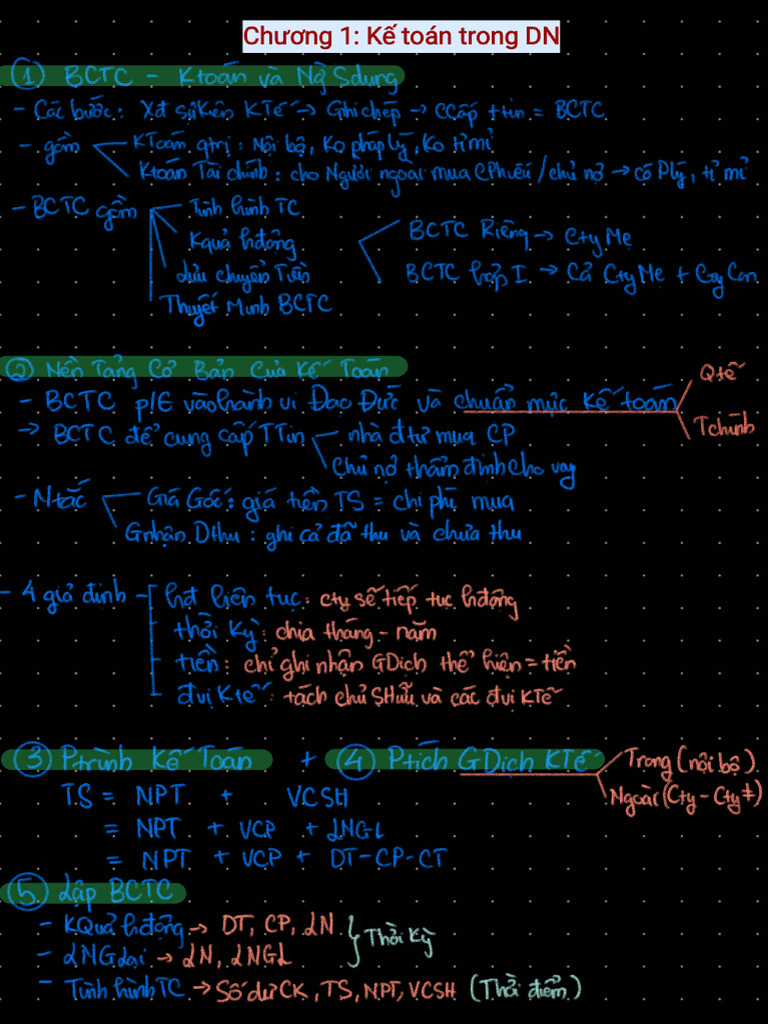 Chương 1: Kế toán trong DN
① BCTC - Ktoán và Ng Sdụng
- Các bước: Xđ sự kiện KTế → Ghi chép → CCấp ttin = BCTC
- gồm KToán qtrị: Nội bộ, Ko pháp lý, Ko tỉ mỉ
Ktoán Tài chính: cho Người ngoài mua CPhiếu / chủ nợ → có Plý, tỉ mỉ
- BCTC gồm Tình hình TC
Kquả hđộng
Lưu chuyển Tiền
Thuyết Minh BCTC
BCTC Riêng → Cty Mẹ
BCTC hợp I → Cả Cty Mẹ + Cty Con
② Nền Tảng Cơ Bản Của Kế Toán
- BCTC p/ vào hành vi Đạo Đức và chuẩn mực kế toán Qtế
Tchính
→ BCTC để cung cấp TTin nhà đtư mua CP
Chủ nợ thẩm định cho vay
- Ntắc Giá Gốc: giá tiền TS = chi phí mua
Gnhận Dthu: ghi cả đã thu và chưa thu
- 4 giả định hđ liên tục: cty sẽ tiếp tục hđộng
thời kỳ: chia tháng - năm
tiền: chỉ ghi nhận GDịch thể hiện = tiền
đvị Ktế: tách chủ SHữu và các đvị KTế
③ Ptrình Kế Toán + ④ Ptích GDịch KTế Trong (nội bộ)
Ngoài (Cty - Cty ≠)
TS = NPT + VCSH
= NPT + VCP + LNGL
= NPT + VCP + DT - CP - CT
⑤ Lập BCTC
- KQuả hđộng → DT, CP, LN
- LNGlại → LN, LNGL
} Thời Kỳ
- Tình hình TC → Số dư CK, TS, NPT, VCSH (Thời điểm)